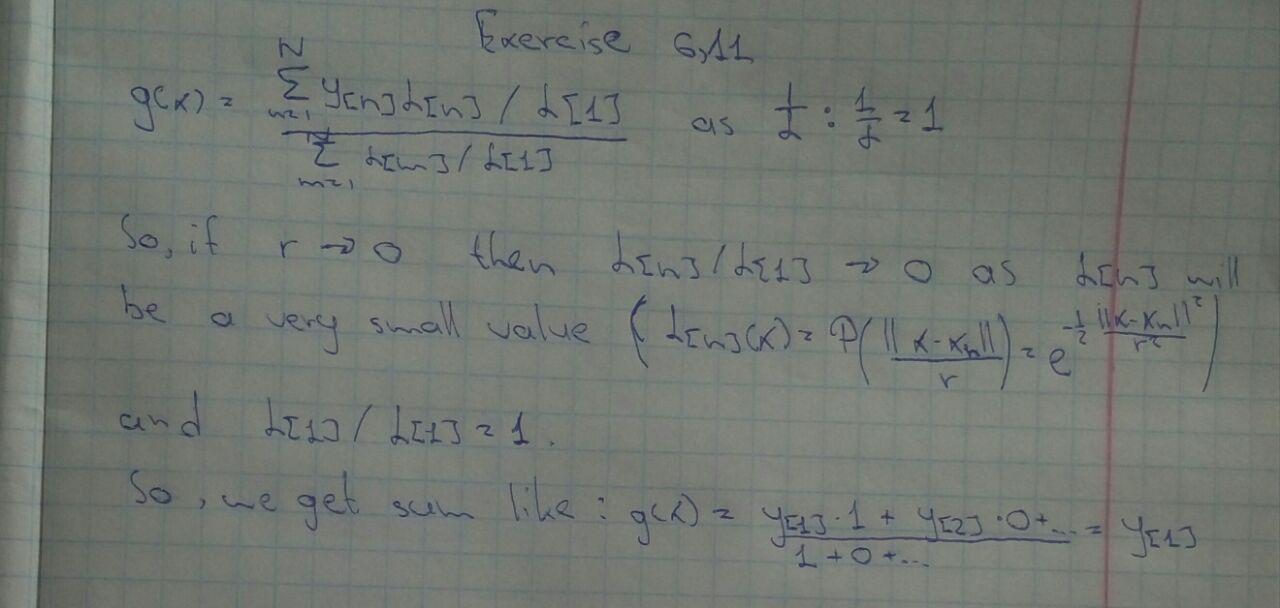 Exercise 6,11
g(x) = \frac{\sum_{m=1}^{N} y[n] α[n] / α[1]}{\sum_{m=1}^{N} α[m] / α[1]} as \frac{1}{α} : \frac{1}{α} = 1
So, if r → 0 then α[n] / α[1] → 0 as α[n] will
be a very small value (α[n](x) = Φ(\frac{||x - x_n||}{r}) = e^{-\frac{1}{2} \frac{||x - x_n||^2}{r^2}})
and α[1] / α[1] = 1.
So, we get sum like: g(x) = \frac{y[1] · 1 + y[2] · 0 + ...}{1 + 0 + ...} = y[1]